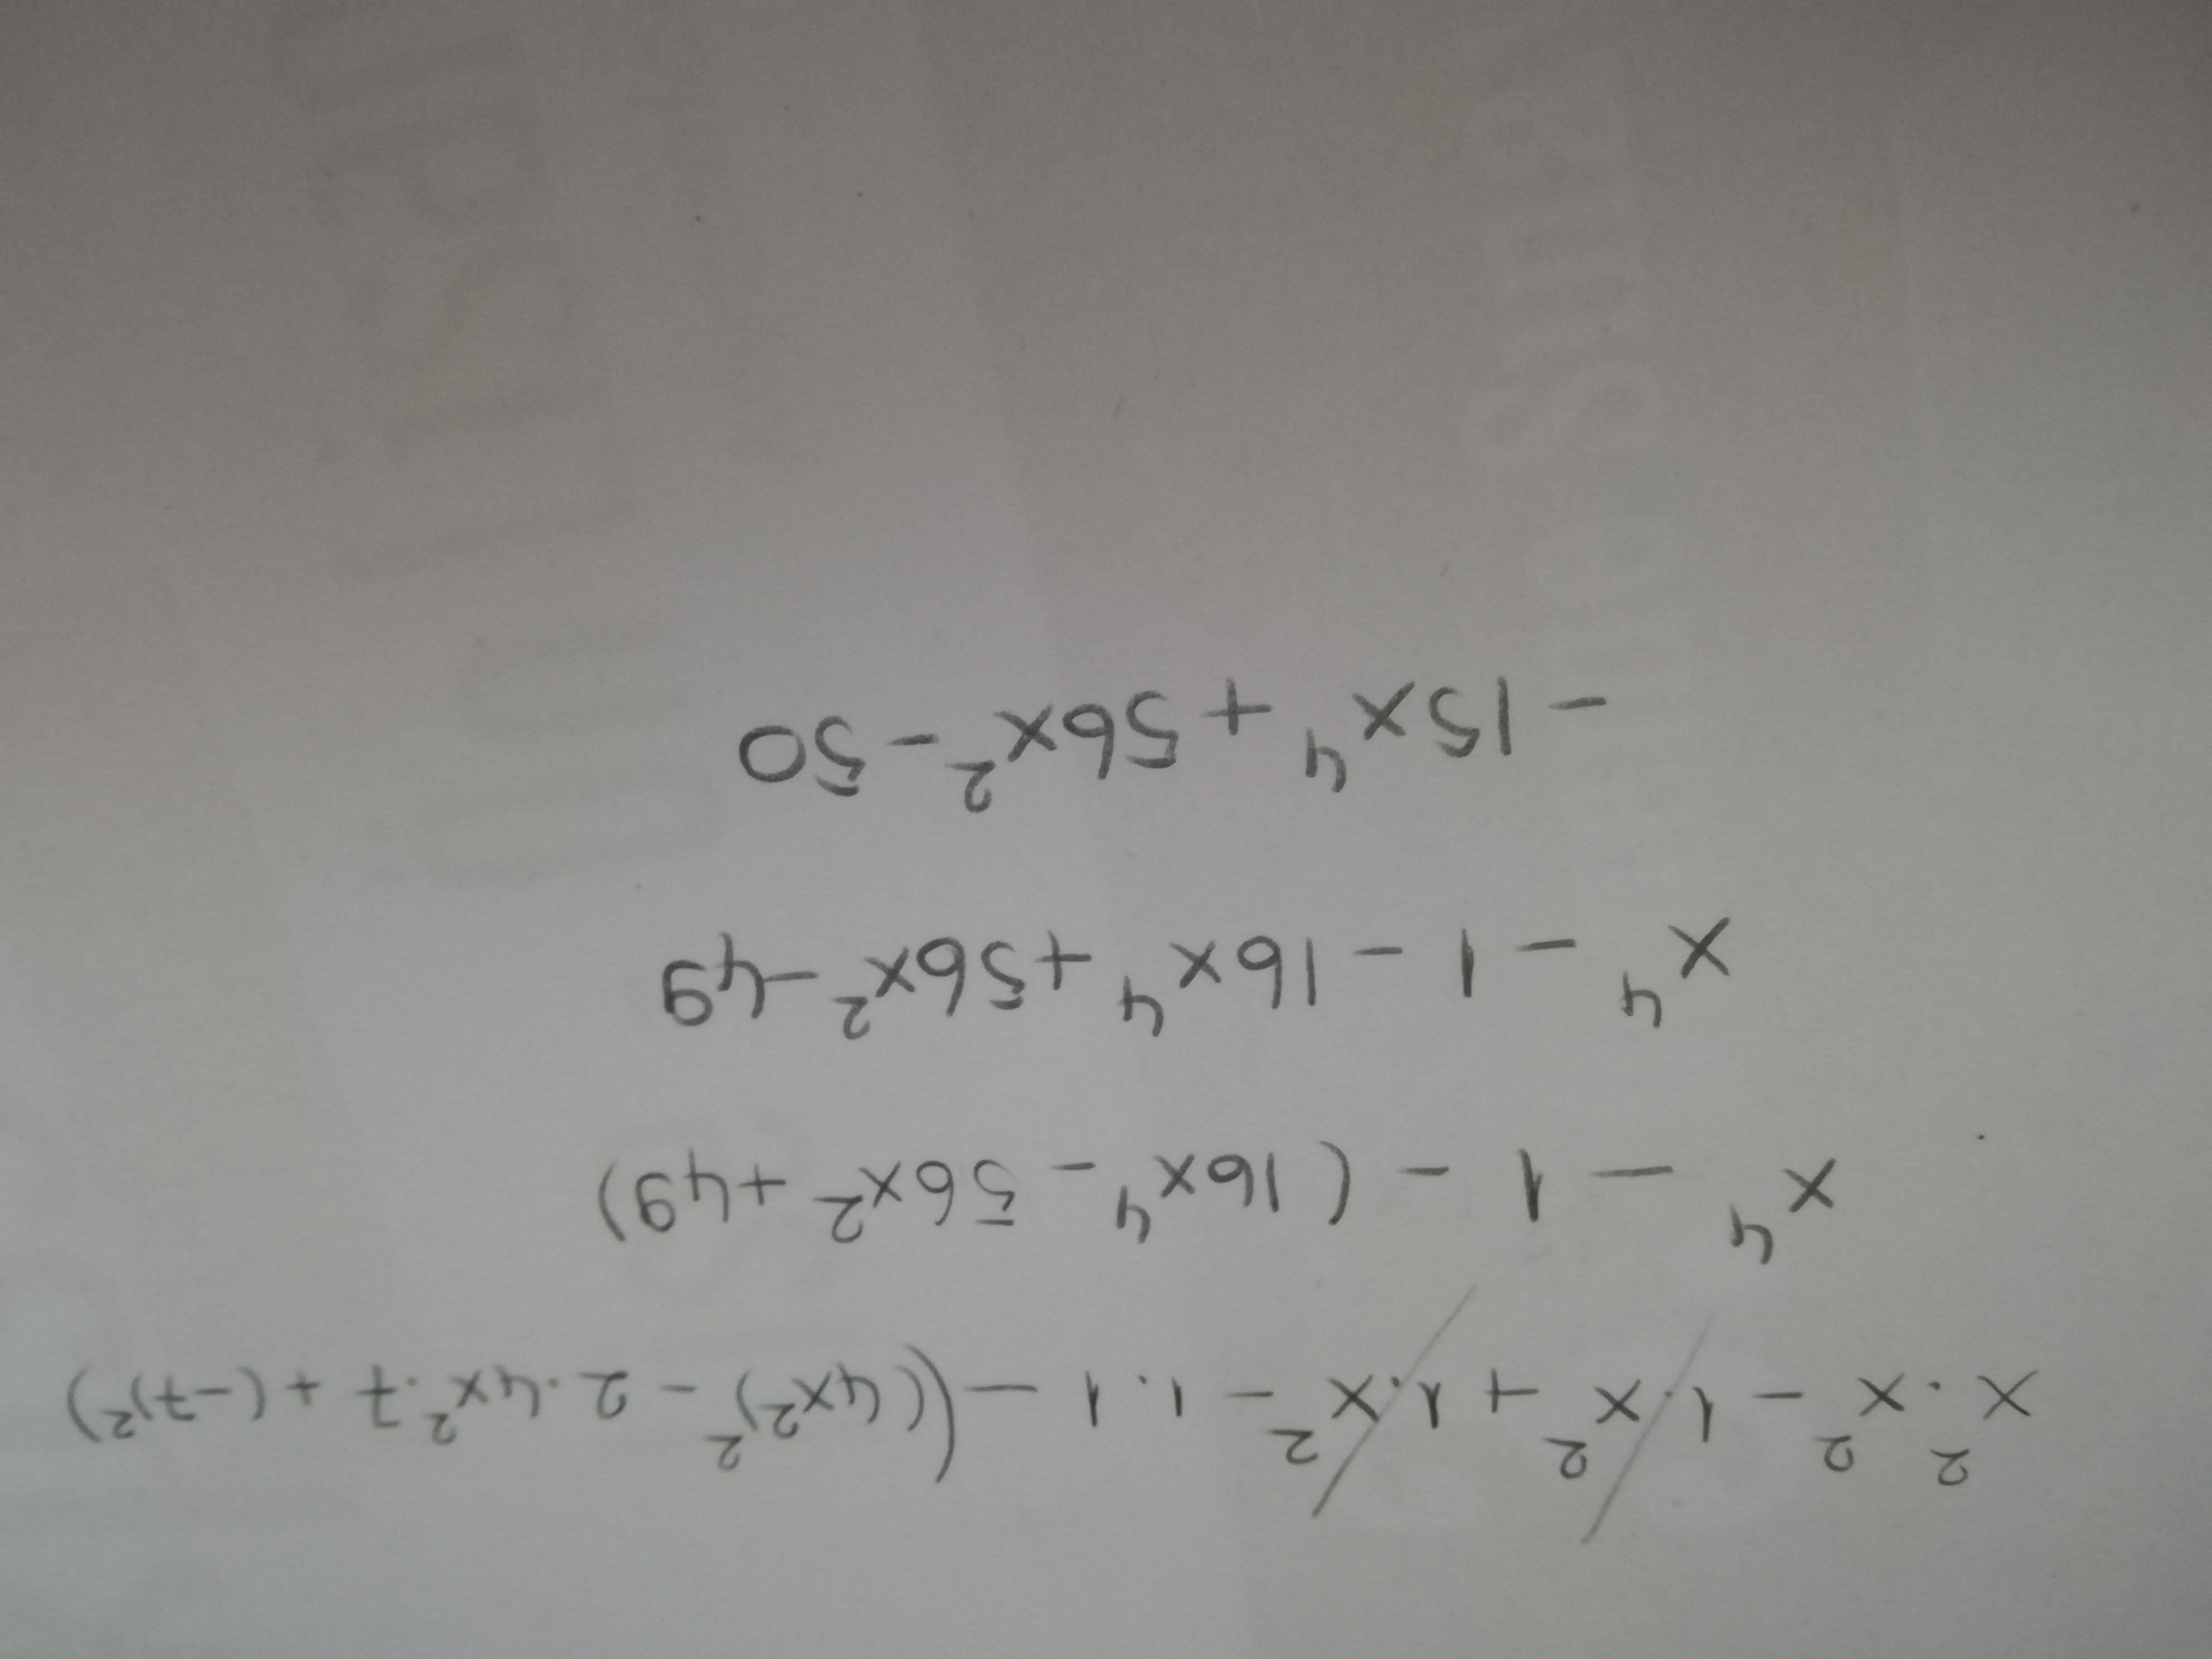 x²·x² - 1·x² + 1·x² - 1·1 - ((4x²)² - 2·4x²·7 + (-7)²)
x⁴ - 1 - (16x⁴ - 56x² + 49)
x⁴ - 1 - 16x⁴ + 56x² - 49
- 15x⁴ + 56x² - 50